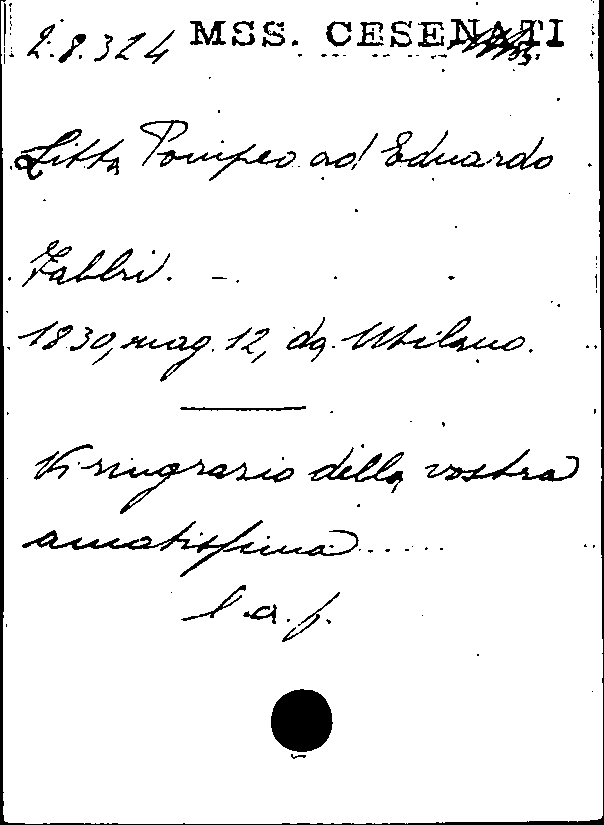 2.8.324 MSS. CESENATI
Litta Pompeo ad Eduardo
Fabbri. -
1830, mag. 12, da Milano.
Vi ringrazio della vostra
amatissima ......
l. a. f.